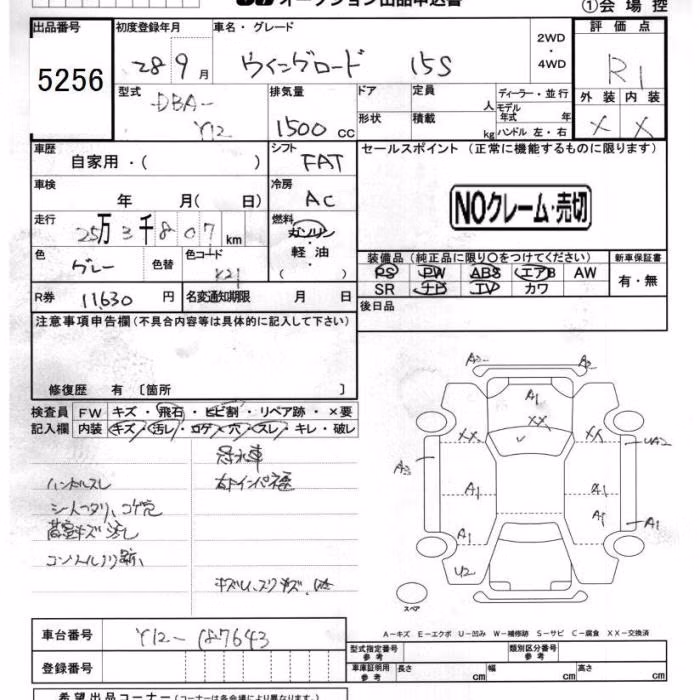 オークション出品申込書
①会場控
出品番号
5256
初度登録年月
28 9 月
車名・グレード
ウイングロード 15S
2WD
・
4WD
評価点
R1
外装 内装
× ×
型式
DBA-
Y12
排気量
1500 cc
ドア
定員
人
形状
積載
kg
ディーラー・並行
モデル
年式 年
ハンドル 左・右
車歴
自家用・( )
シフト
FAT
セールスポイント (正常に機能するものに限ります)
NOクレーム・売切
車検
年 月( 日)
冷房
AC
走行
25万3千807 km
燃料
ガソリン
・
軽油
( )
色
グレー
色替
色コード
K21
装備品 (純正品に限り〇をつけてください)
新車保証書
PS PW ABS エアB AW
有・無
SR ナビ TV カワ
R券 11,630 円
名変通知期限 月 日
後日品
注意事項申告欄(不具合内容等は具体的に記入して下さい)
修復歴 有 [箇所 ]
検査員
記入欄
FW キズ・飛石・ヒビ割・リペア跡・×要
内装 キズ・汚レ・コゲ・穴・スレ・キレ・破レ
ハンドルスレ
A2
A2
A1
XX
XX
XX
UA2
A1
A1
A1
A1
U2
スペア
A-キズ E-エクボ U-凹み W-補修跡 S-サビ C-腐食 XX-交換済
車台番号 Y12-187643
登録番号
型式指定番号
参考
類別区分番号
参考
車庫証明用
参考
長さ cm
幅 cm
高さ cm
希望出品コーナー (コーナーは各会場により異なります。)